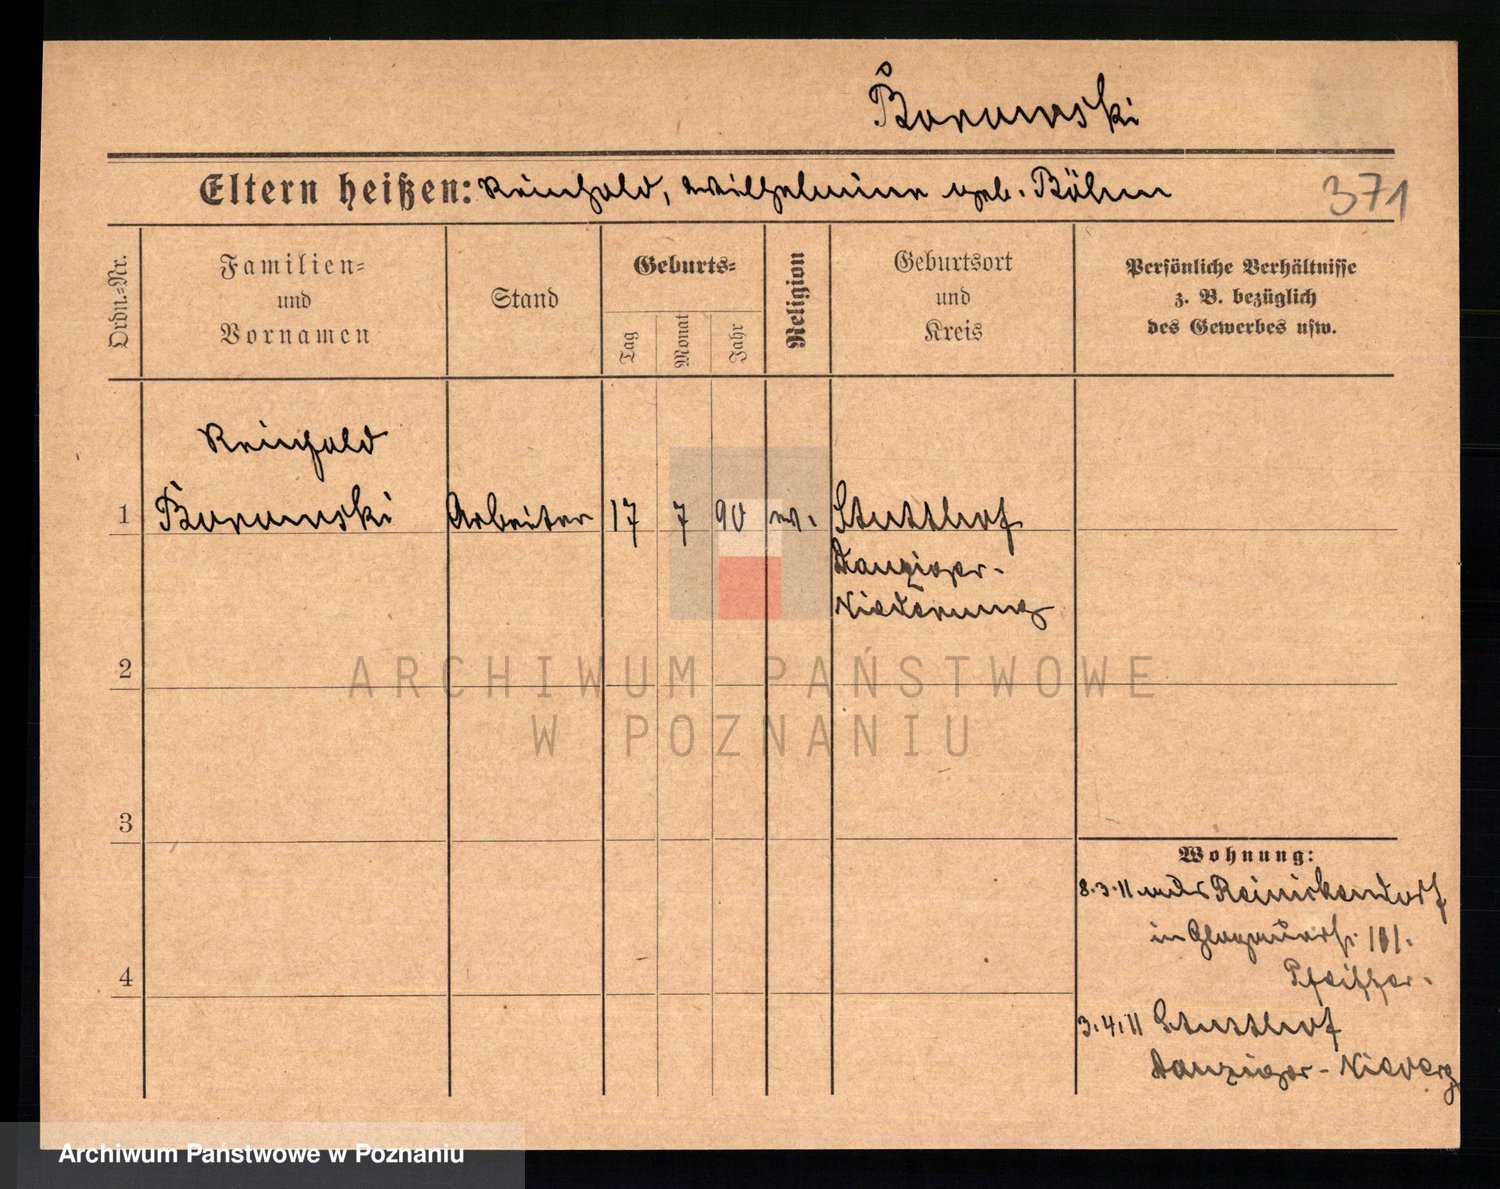 Borowski
Eltern heißen: Reinhold, Wilhelmine geb. Böhm
371
Ordn.=Nr.
Familien=
und
Vornamen
Stand
Geburts=
Tag
Monat
Jahr
Religion
Geburtsort
und
Kreis
Persönliche Verhältnisse
z. B. bezüglich
des Gewerbes usw.
Reinhold
1 Borowski Arbeiter 17 7 90 ev. Stutthof
Danziger-
Niederung
2
ARCHIWUM PAŃSTWOWE
W POZNANIU
3
Wohnung:
8.3.11 aus Reinickendorf
in Glogauerstr. 101.
Pfeiffer.
4
3.4.11 Stutthof
Danziger-Niederg
Archiwum Państwowe w Poznaniu